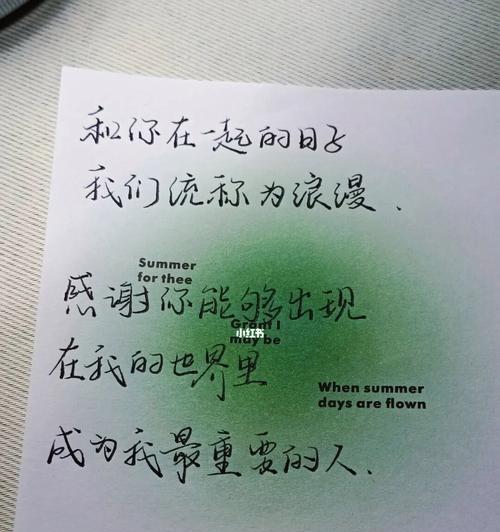 和你在一起的日子
我们统称为浪漫.
Summer
for thee
感谢你能够出现
Grant I
may be
小红书
在我的世界里
When summer
days are flown
成为我最重要的人.